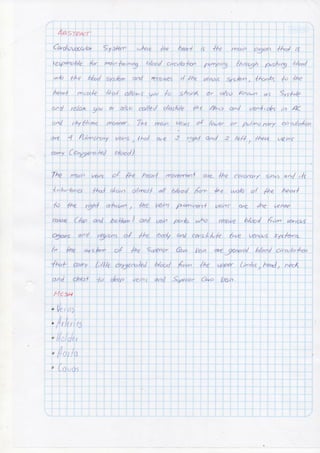 ABSTRACT
Cardiovascular System where the heart is the main organ that is
responsible for maintaining blood circulation pumping through pushing blood
into the blood system and receives it the venous system, thanks to the
heart muscle that allows you to shrink or also known as Systole
and relax you or also called diastole the Atria and ventricles in AC
and rhythmic manner. The main veins of lower or pulmonary circulation
are 4 Pulmonary veins, that are 2 right and 2 left, these veins
carry (oxygenated blood).
The main veins of the heart movement are the coronary sinus and its
tributaries that drain almost all blood from the walls of the heart
to the right atrium, the veins prominent veins are the venae
cavae (top and bottom) and vein ports who move blood from venous
organs and regions of the body and constitute true venous systems.
In the system of the Superior Cava Vein are general blood circulation
that carry Little oxygenated blood from the upper Limbs, head, neck
and chest to deep veins and Superior Cava Vein.
MESH
• Veins
• Arteries
• Holder
• Aorta
• Cavas